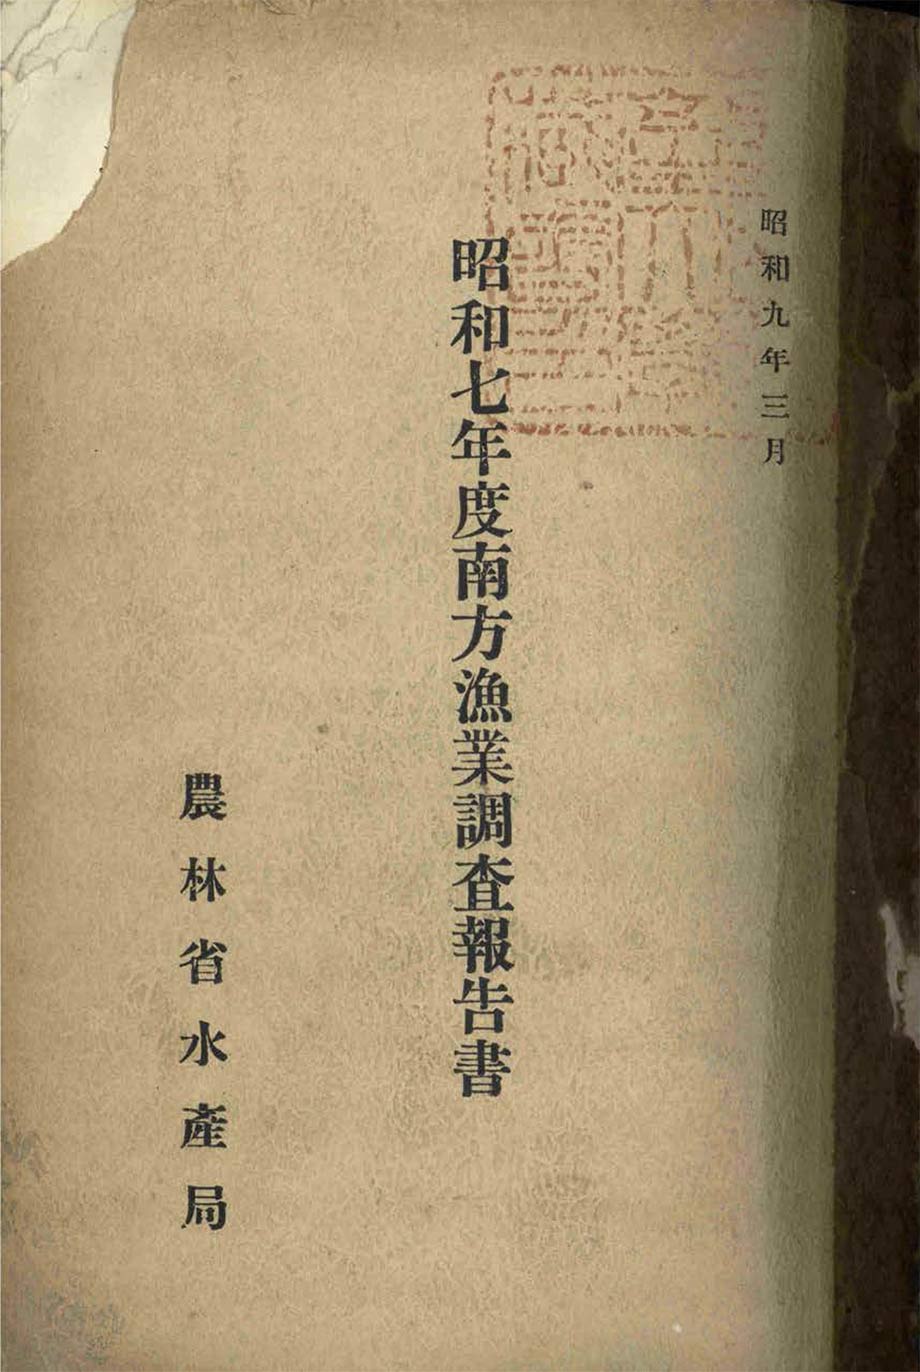 昭和九年三月
昭和七年度南方漁業調査報告書
農林省水產局